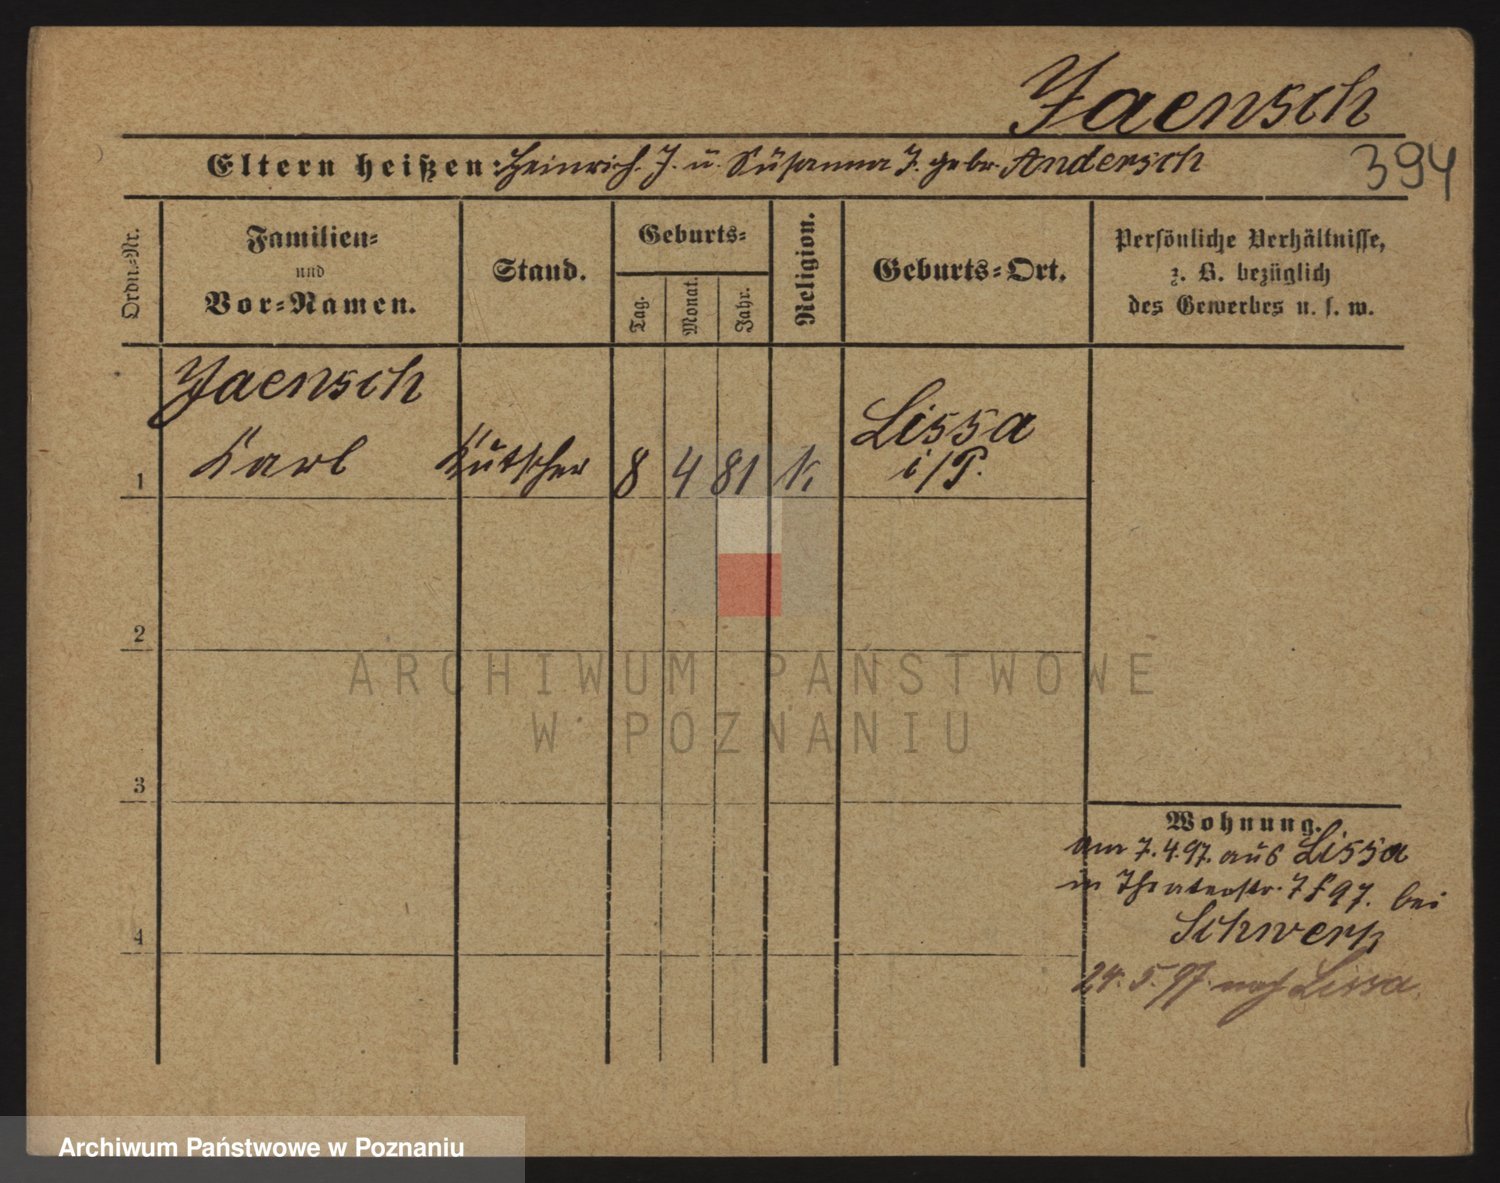 Jaensch
Eltern heißen: Heinrich J. u. Susanna J. gebr. Andersch
394
Ordn.-Nr.
Familien-
und
Vor-Namen.
Stand.
Geburts-
Tag.
Monat.
Jahr.
Religion.
Geburts-Ort.
Persönliche Verhältnisse,
z. B. bezüglich
des Gewerbes u. s. w.
Jaensch
Karl
Kutscher
8
4
81
k.
Lissa
i/P.
1
2
3
4
Wohnung.
am 7.4.97. aus Lissa
in Theaterstr. 7 bei
Schwerk
24.5.97. nach Lissa.
ARCHIWUM PAŃSTWOWE
W POZNANIU
Archiwum Państwowe w Poznaniu